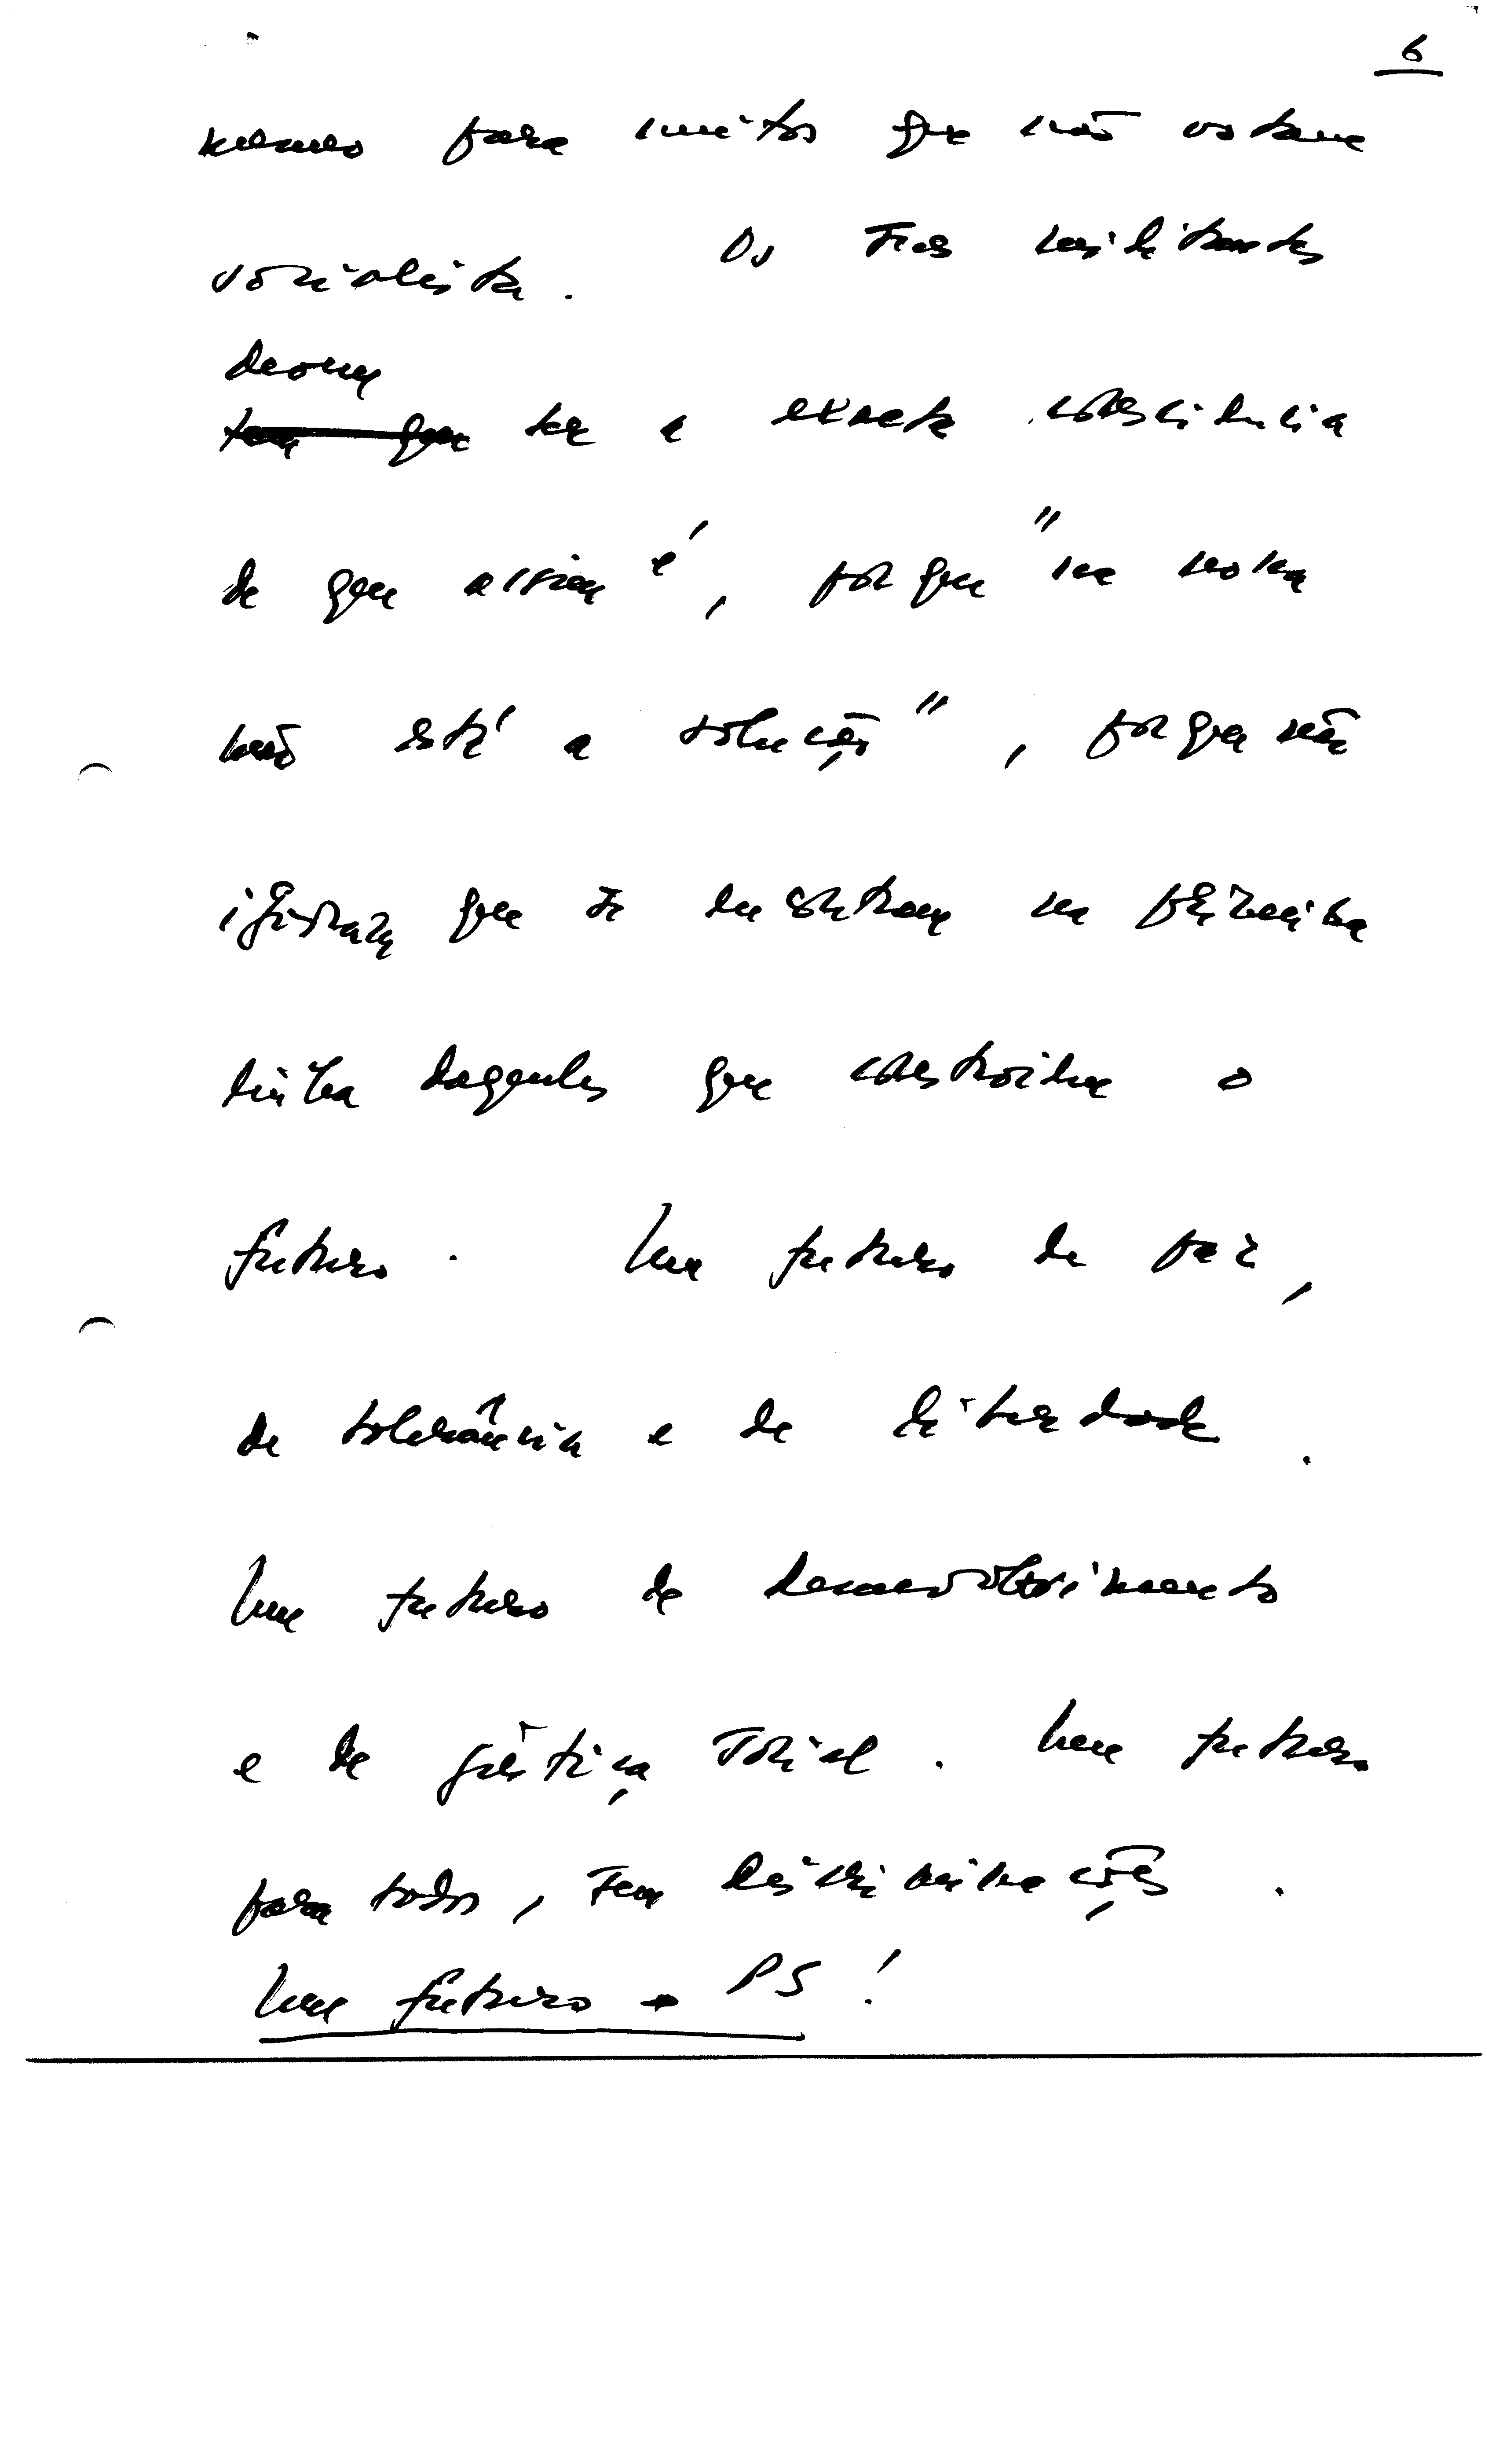 6
mesmo para muitos que não votam
socialista. Os seus militantes
devem
tem que ter a exacta consciência
de que assim é, porque "na rosa
não está a solução", porque não
ignoram que se encontram na primeira
linha daqueles que constroiem o
futuro. Um futuro de paz,
de tolerância e de liberdade.
Um futuro de desenvolvimento
e de justiça social. Um futuro
para todos, sem discriminações.
Um futuro - PS!